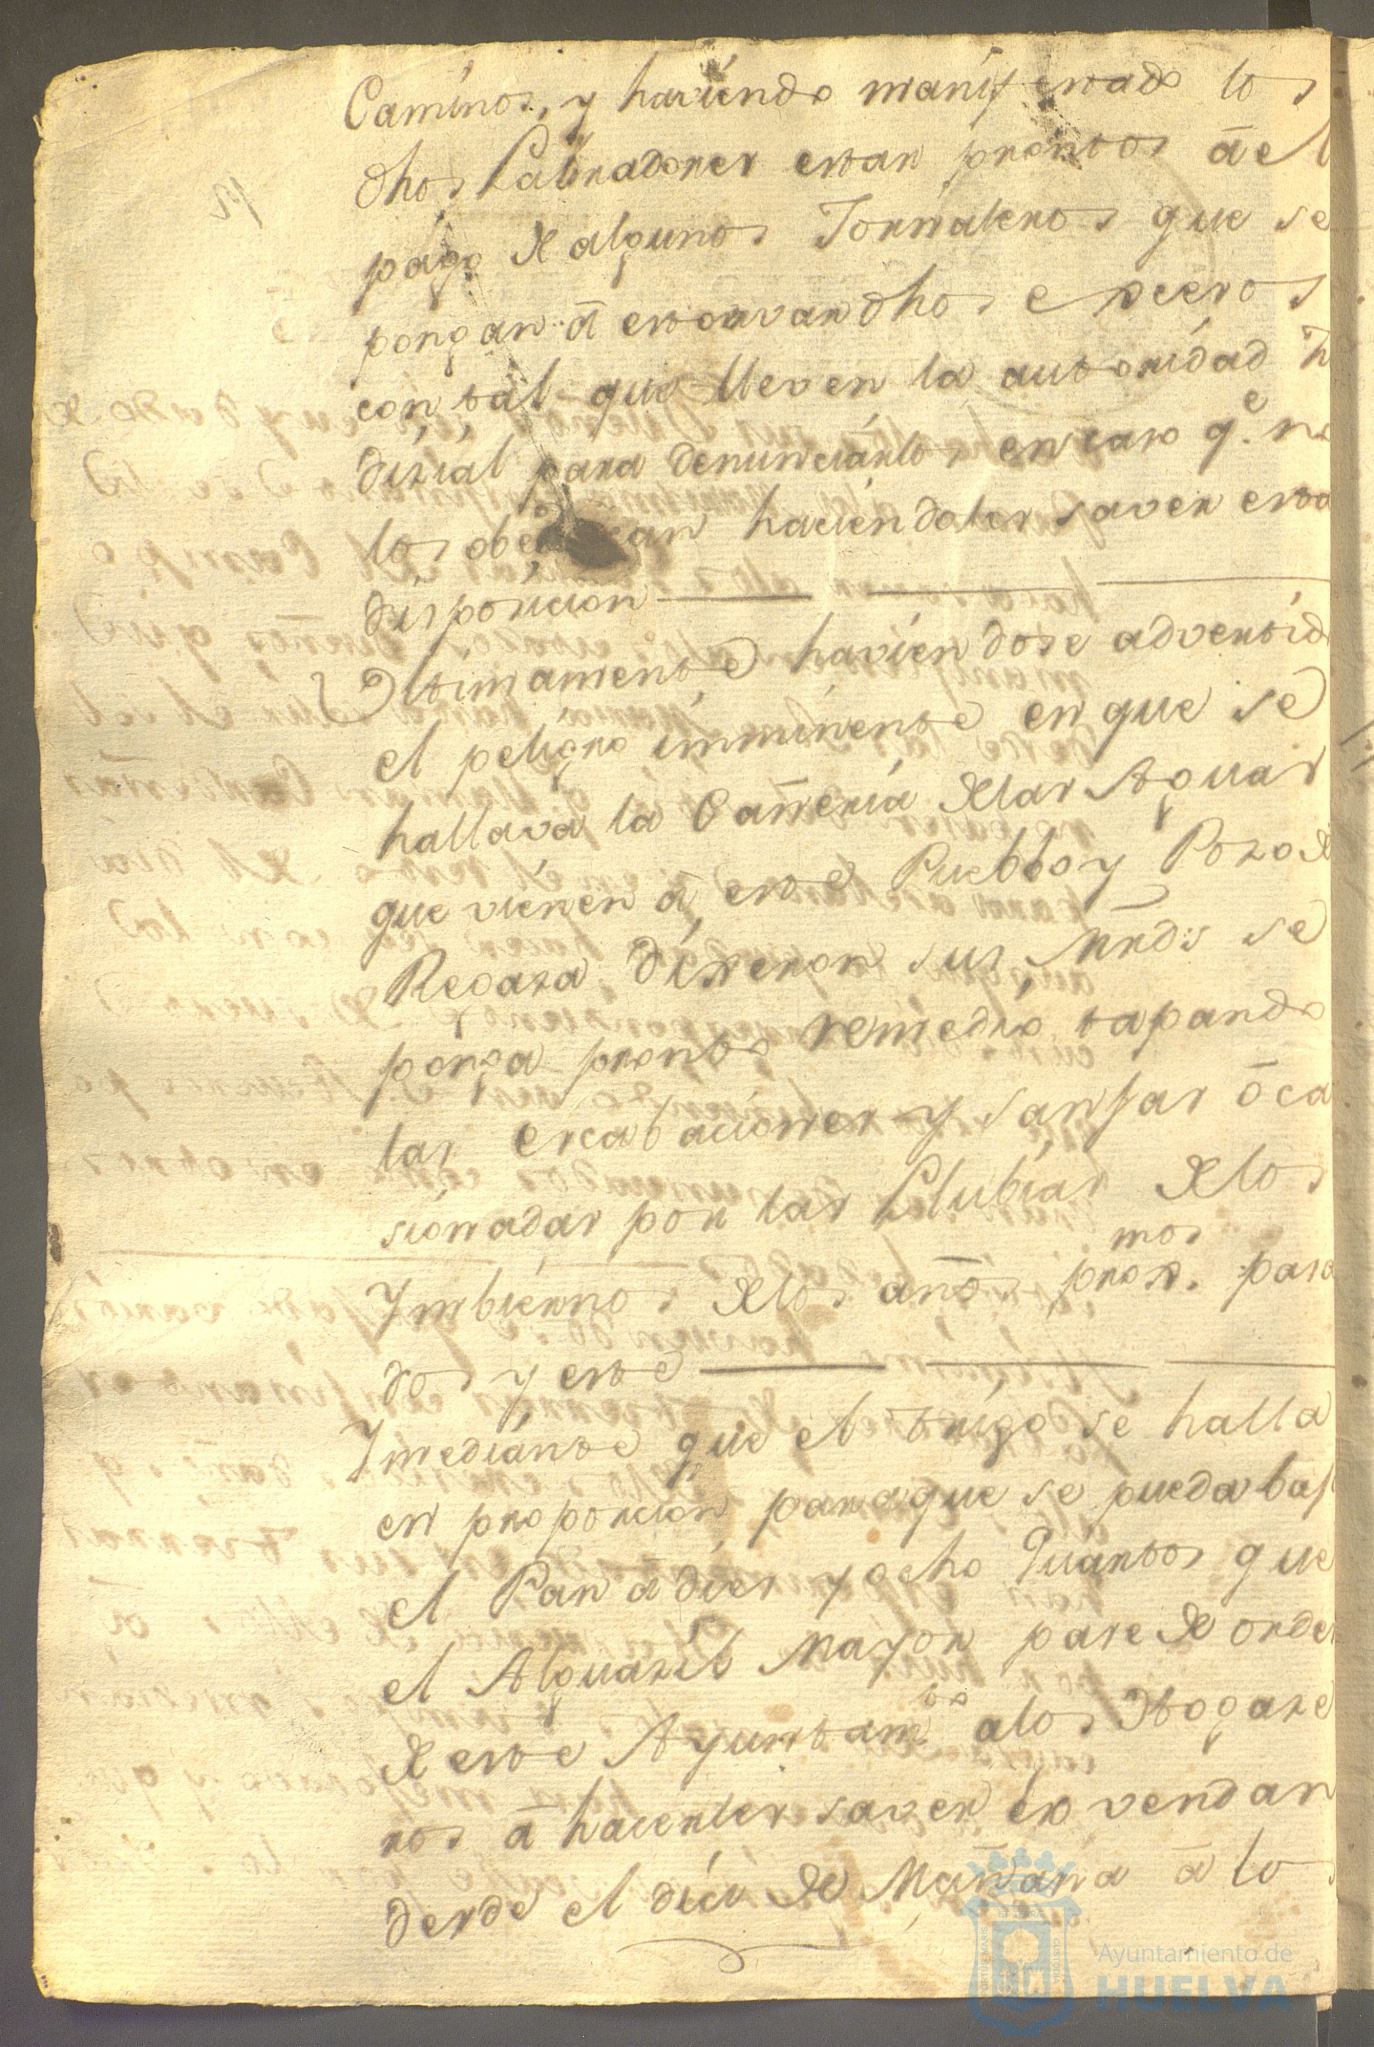 Caminos, y haviendo manifestado los
dhos Labradores estar prontos â el
pago de algunos Jornaleros que se
pongan â estorvar dhos excesos
con tal que lleven la autoridad Ju
dizial para denunciarlos en caso q.e no
los obedezcan haciendoles saver esta
disposicion
Vltimamente haviendose advertid
el peligro imminente en que se
hallava la Cañeria de las Aguas
que vienen â este Pueblo y Pozo de
Regaza dixeron sus Mrds se
ponga pronto remedio tapando
las Escabaciones y sanjas ôca
sionadas por las Llubias de los
Ymbiernos de los años prox.mos pasa
dos y este
Y mediante que el trigo se halla
en proporcion para que se pueda baj
el Pan a diez y ocho Quartos que
el Alguazil Mayor pase de orden
de este Ayuntam.to a los Hogaze
ros â hacerles saver lo vendan
desde el dia de Mañana â lo
Ayuntamiento de
HUELVA